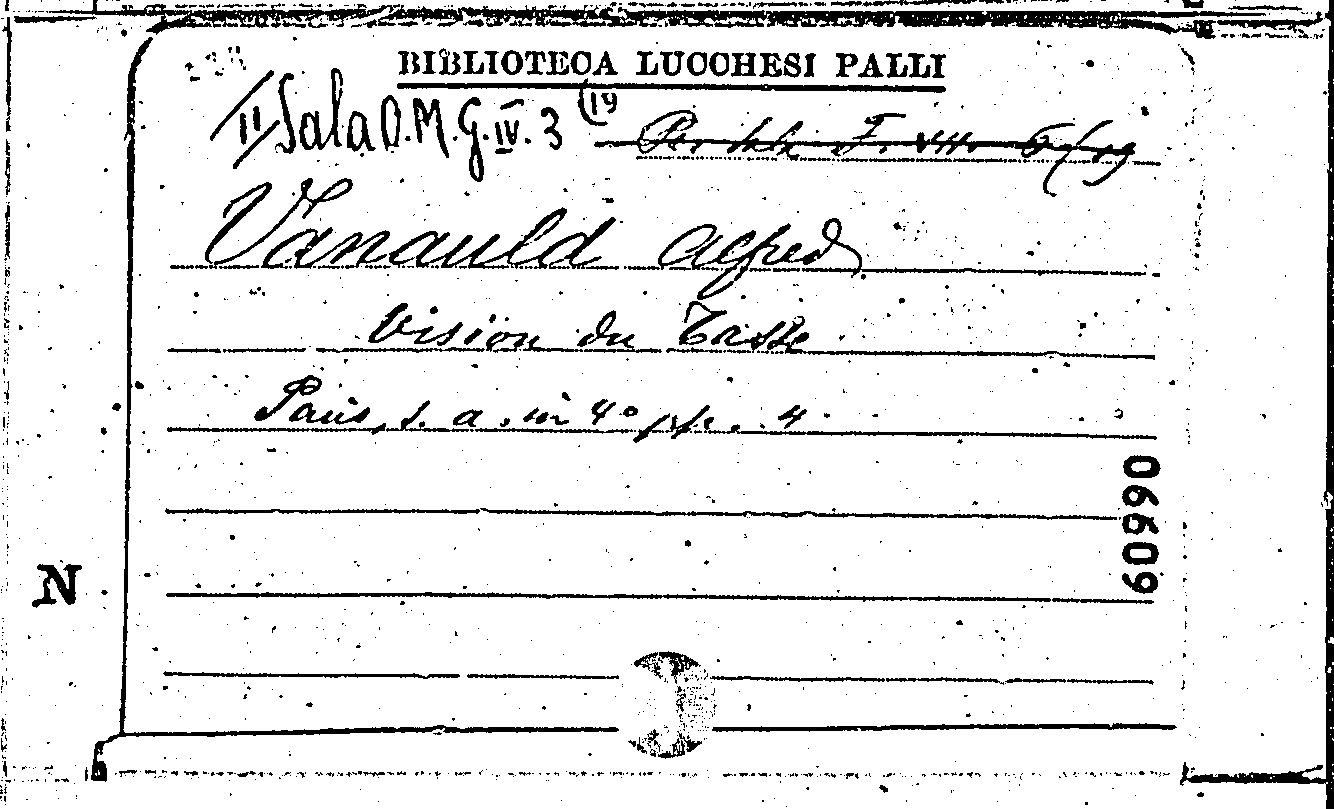 BIBLIOTECA LUCCHESI PALLI
II Sala O.M.G.IV.3 (19
Vanauld Alfred
Vision du Tasse
Paris, s. a. in 4° pp. 4.
60990
N